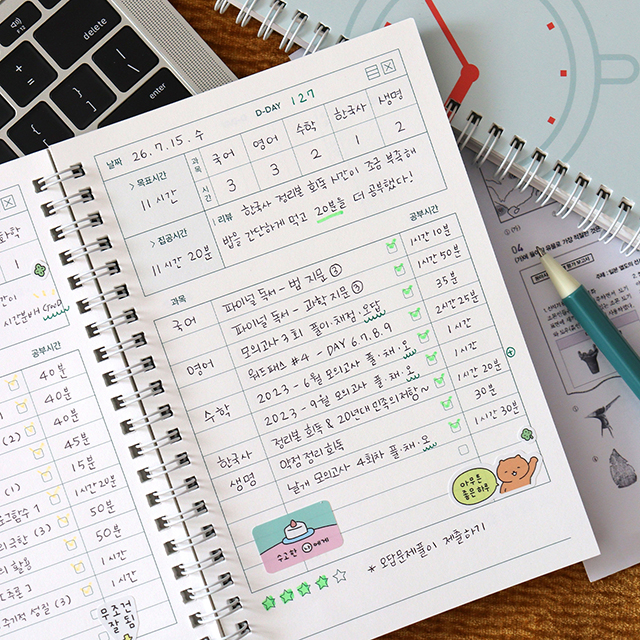 delete
enter
날짜 26.7.15.수
D-DAY 127
> 목표시간
11시간
과목 국어 영어 수학 한국사 생명
시간 3 3 2 1 2
> 집공시간
11시간 20분
| 리뷰
한국사 정리본 회독 시간이 조금 부족해
밥을 간단하게 먹고 20분을 더 공부했다!
과목
공부시간
국어 파이널 독서 - 법 지문 ③ 1시간 10분
파이널 독서 - 과학 지문 ③ 1시간 50분
영어 모의고사 3회 풀이·채점·오답 35분
워드패스 #4 - DAY 6.7.8.9 2시간 25분
수학 2023 - 6월 모의고사 풀·채·오 1시간
2023 - 9월 모의고사 풀·채·오 1시간
한국사 정리본 회독 & 20년대 민족의 저항~ 1시간 20분
맥점 정리 회독 30분
생명 날개 모의고사 4회차 풀·채·오 1시간 30분
아무튼
좋은하루
수고한 에게
* 오답문제풀이 제출하기
공부시간
40분
40분
40분
45분
15분
1시간 20분
50분
50분
1시간
1시간
무조건
잘 됨
04